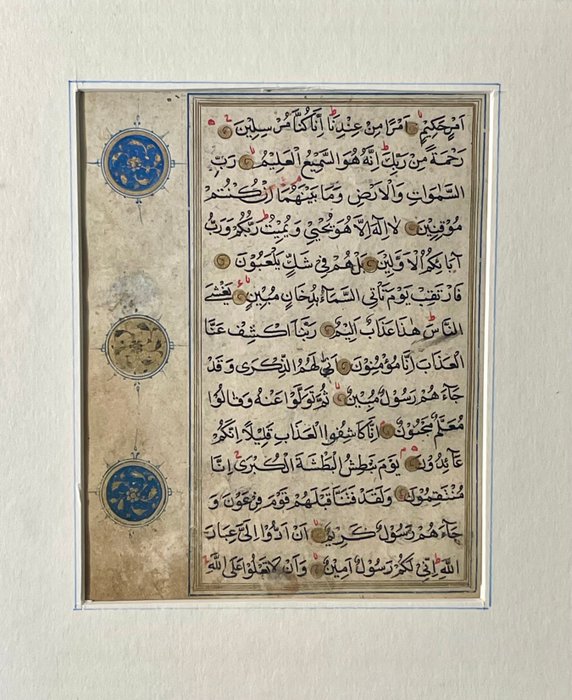 اَمْرٍ حَكِيمٍ اَمْرًا مِنْ عِنْدِنَا اِنَّا كُنَّا مُرْسِلِينَ
رَحْمَةً مِنْ رَبِّكَ اِنَّهُ هُوَ السَّمِيعُ الْعَلِيمُ رَبِّ
السَّمٰوَاتِ وَالْاَرْضِ وَمَا بَيْنَهُمَا اِنْ كُنْتُمْ
مُوقِنِينَ لَا اِلٰهَ اِلَّا هُوَ يُحْيِي وَيُمِيتُ رَبُّكُمْ وَرَبُّ
اٰبَائِكُمُ الْاَوَّلِينَ بَلْ هُمْ فِي شَكٍّ يَلْعَبُونَ
فَارْتَقِبْ يَوْمَ تَأْتِي السَّمَاءُ بِدُخَانٍ مُبِينٍ يَغْشَى
النَّاسَ هٰذَا عَذَابٌ اَلِيمٌ رَبَّنَا اكْشِفْ عَنَّا
الْعَذَابَ اِنَّا مُؤْمِنُونَ اَنّٰى لَهُمُ الذِّكْرٰى وَقَدْ
جَاءَهُمْ رَسُولٌ مُبِينٌ ثُمَّ تَوَلَّوْا عَنْهُ وَقَالُوا
مُعَلَّمٌ مَجْنُونٌ اِنَّا كَاشِفُوا الْعَذَابِ قَلِيلًا اِنَّكُمْ
عَائِدُونَ يَوْمَ نَبْطِشُ الْبَطْشَةَ الْكُبْرٰى اِنَّا
مُنْتَقِمُونَ وَلَقَدْ فَتَنَّا قَبْلَهُمْ قَوْمَ فِرْعَوْنَ وَ
جَاءَهُمْ رَسُولٌ كَرِيمٌ اَنْ اَدُّوا اِلَيَّ عِبَادَ
اللّٰهِ اِنِّي لَكُمْ رَسُولٌ اَمِينٌ وَاَنْ لَا تَعْلُوا عَلَى اللّٰهِ